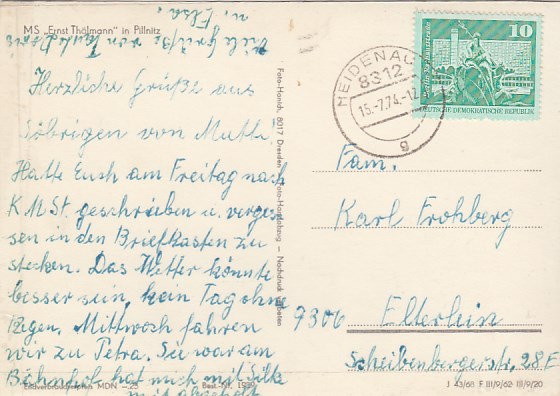 MS „Ernst Thälmann" in Pillnitz
Herzliche Grüße aus
Söbrigen von Mutti.
Hatte Euch am Freitag nach
K.M.St. geschrieben u. verges-
sen in den Briefkasten zu
stecken. Das Wetter könnte
besser sein, kein Tag ohne
Regen. Mittwoch fahren
wir zu Petra. Sie war am
Bahnhof hat mich mit Silke
mit abgeholt
Viele Grüße von
u. Elsa!
EVP MDN –,25
Foto-Handrick 8017 Dresden
Nachdruck verboten
HEIDENAU
8312
15.-7.74.-12
g
10
DEUTSCHE DEMOKRATISCHE REPUBLIK
Fam.
Karl Frohberg
9306 Elterlein
Scheibenbergerstr. 28F
J 43/68 F III/9/62 III/9/20